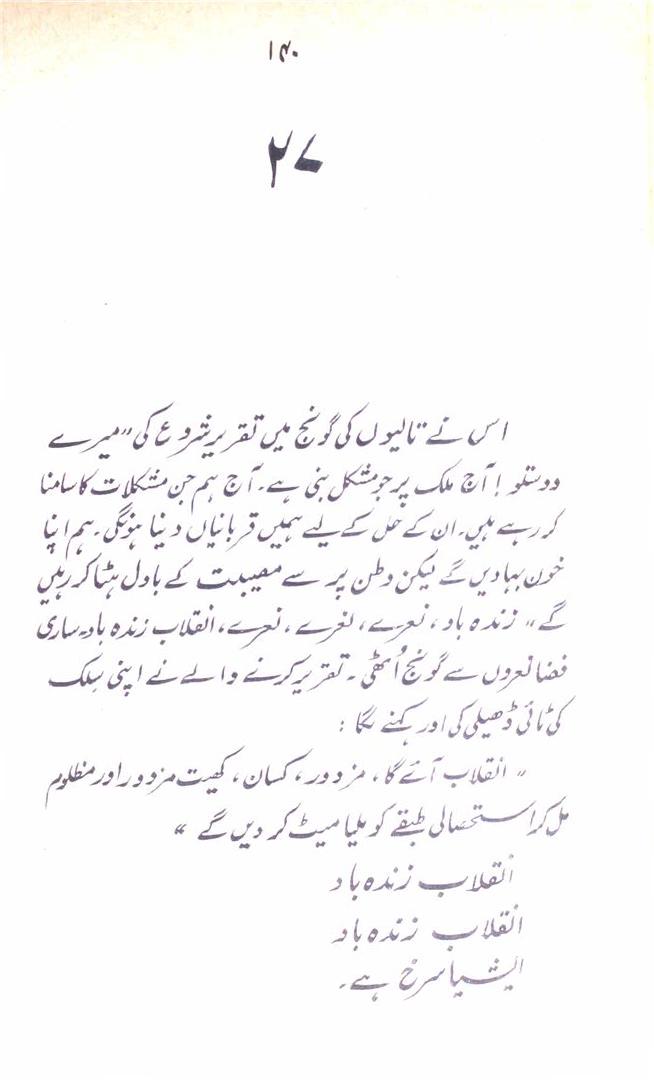 ۱۴۰
۲۷
اس نے تالیوں کی گونج میں تقریر شروع کی "میرے
دوستو! آج ملک پر جو مشکل بنی ہے۔ آج ہم جن مشکلات کا سامنا
کر رہے ہیں۔ ان کے حل کے لیے ہمیں قربانیاں دینا ہونگی۔ ہم اپنا
خون بہا دیں گے لیکن وطن پر سے مصیبت کے بادل ہٹا کر رہیں
گے" زندہ باد، نعرے، نعرے، نعرے، انقلاب زندہ باد۔ ساری
فضا نعروں سے گونج اُٹھی۔ تقریر کرنے والے نے اپنی سِلک
کی ٹائی ڈھیلی کی اور کہنے لگا:
"انقلاب آئے گا، مزدور، کسان، کھیت مزدور اور مظلوم
مل کر استحصالی طبقے کو ملیا میٹ کر دیں گے"
انقلاب زندہ باد
انقلاب زندہ باد
ایشیا سرخ ہے۔